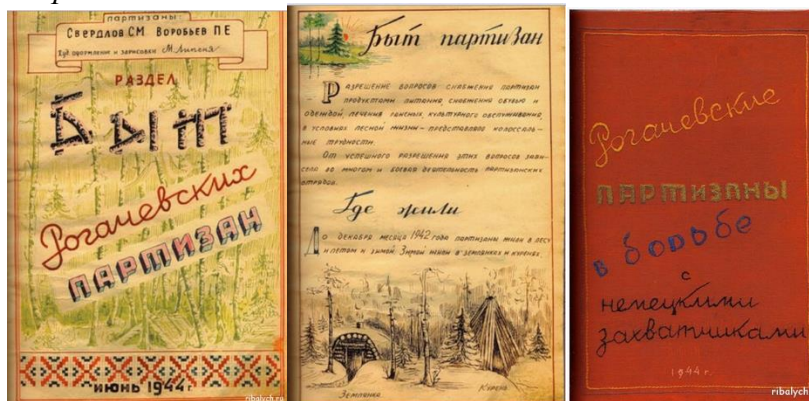 партизаны
Свердлов СМ Воробьев ПЕ
Худ. оформление и зарисовки М. Липеня
РАЗДЕЛ
БЫТ
Рогачевских
ПАРТИЗАН
июнь 1944 г
ribalych.ru
Быт партизан
Разрешение вопросов снабжения партизан
– продуктами питания, снабжения обувью и
одеждой, лечения раненых, культурного обслуживания,
в условиях лесной жизни – представляло колоссаль-
ные трудности.
От успешного разрешения этих вопросов зави-
села во многом и боевая деятельность партизанских
отрядов.
Где жили
До декабря месяца 1942 года партизаны жили в лесу
и летом и зимой. Зимой жили в землянках и куренях
Землянка Курень
Рогачевские
ПАРТИЗАНЫ
в борьбе
с
немецкими
захватчиками
1944 г.
ribalych